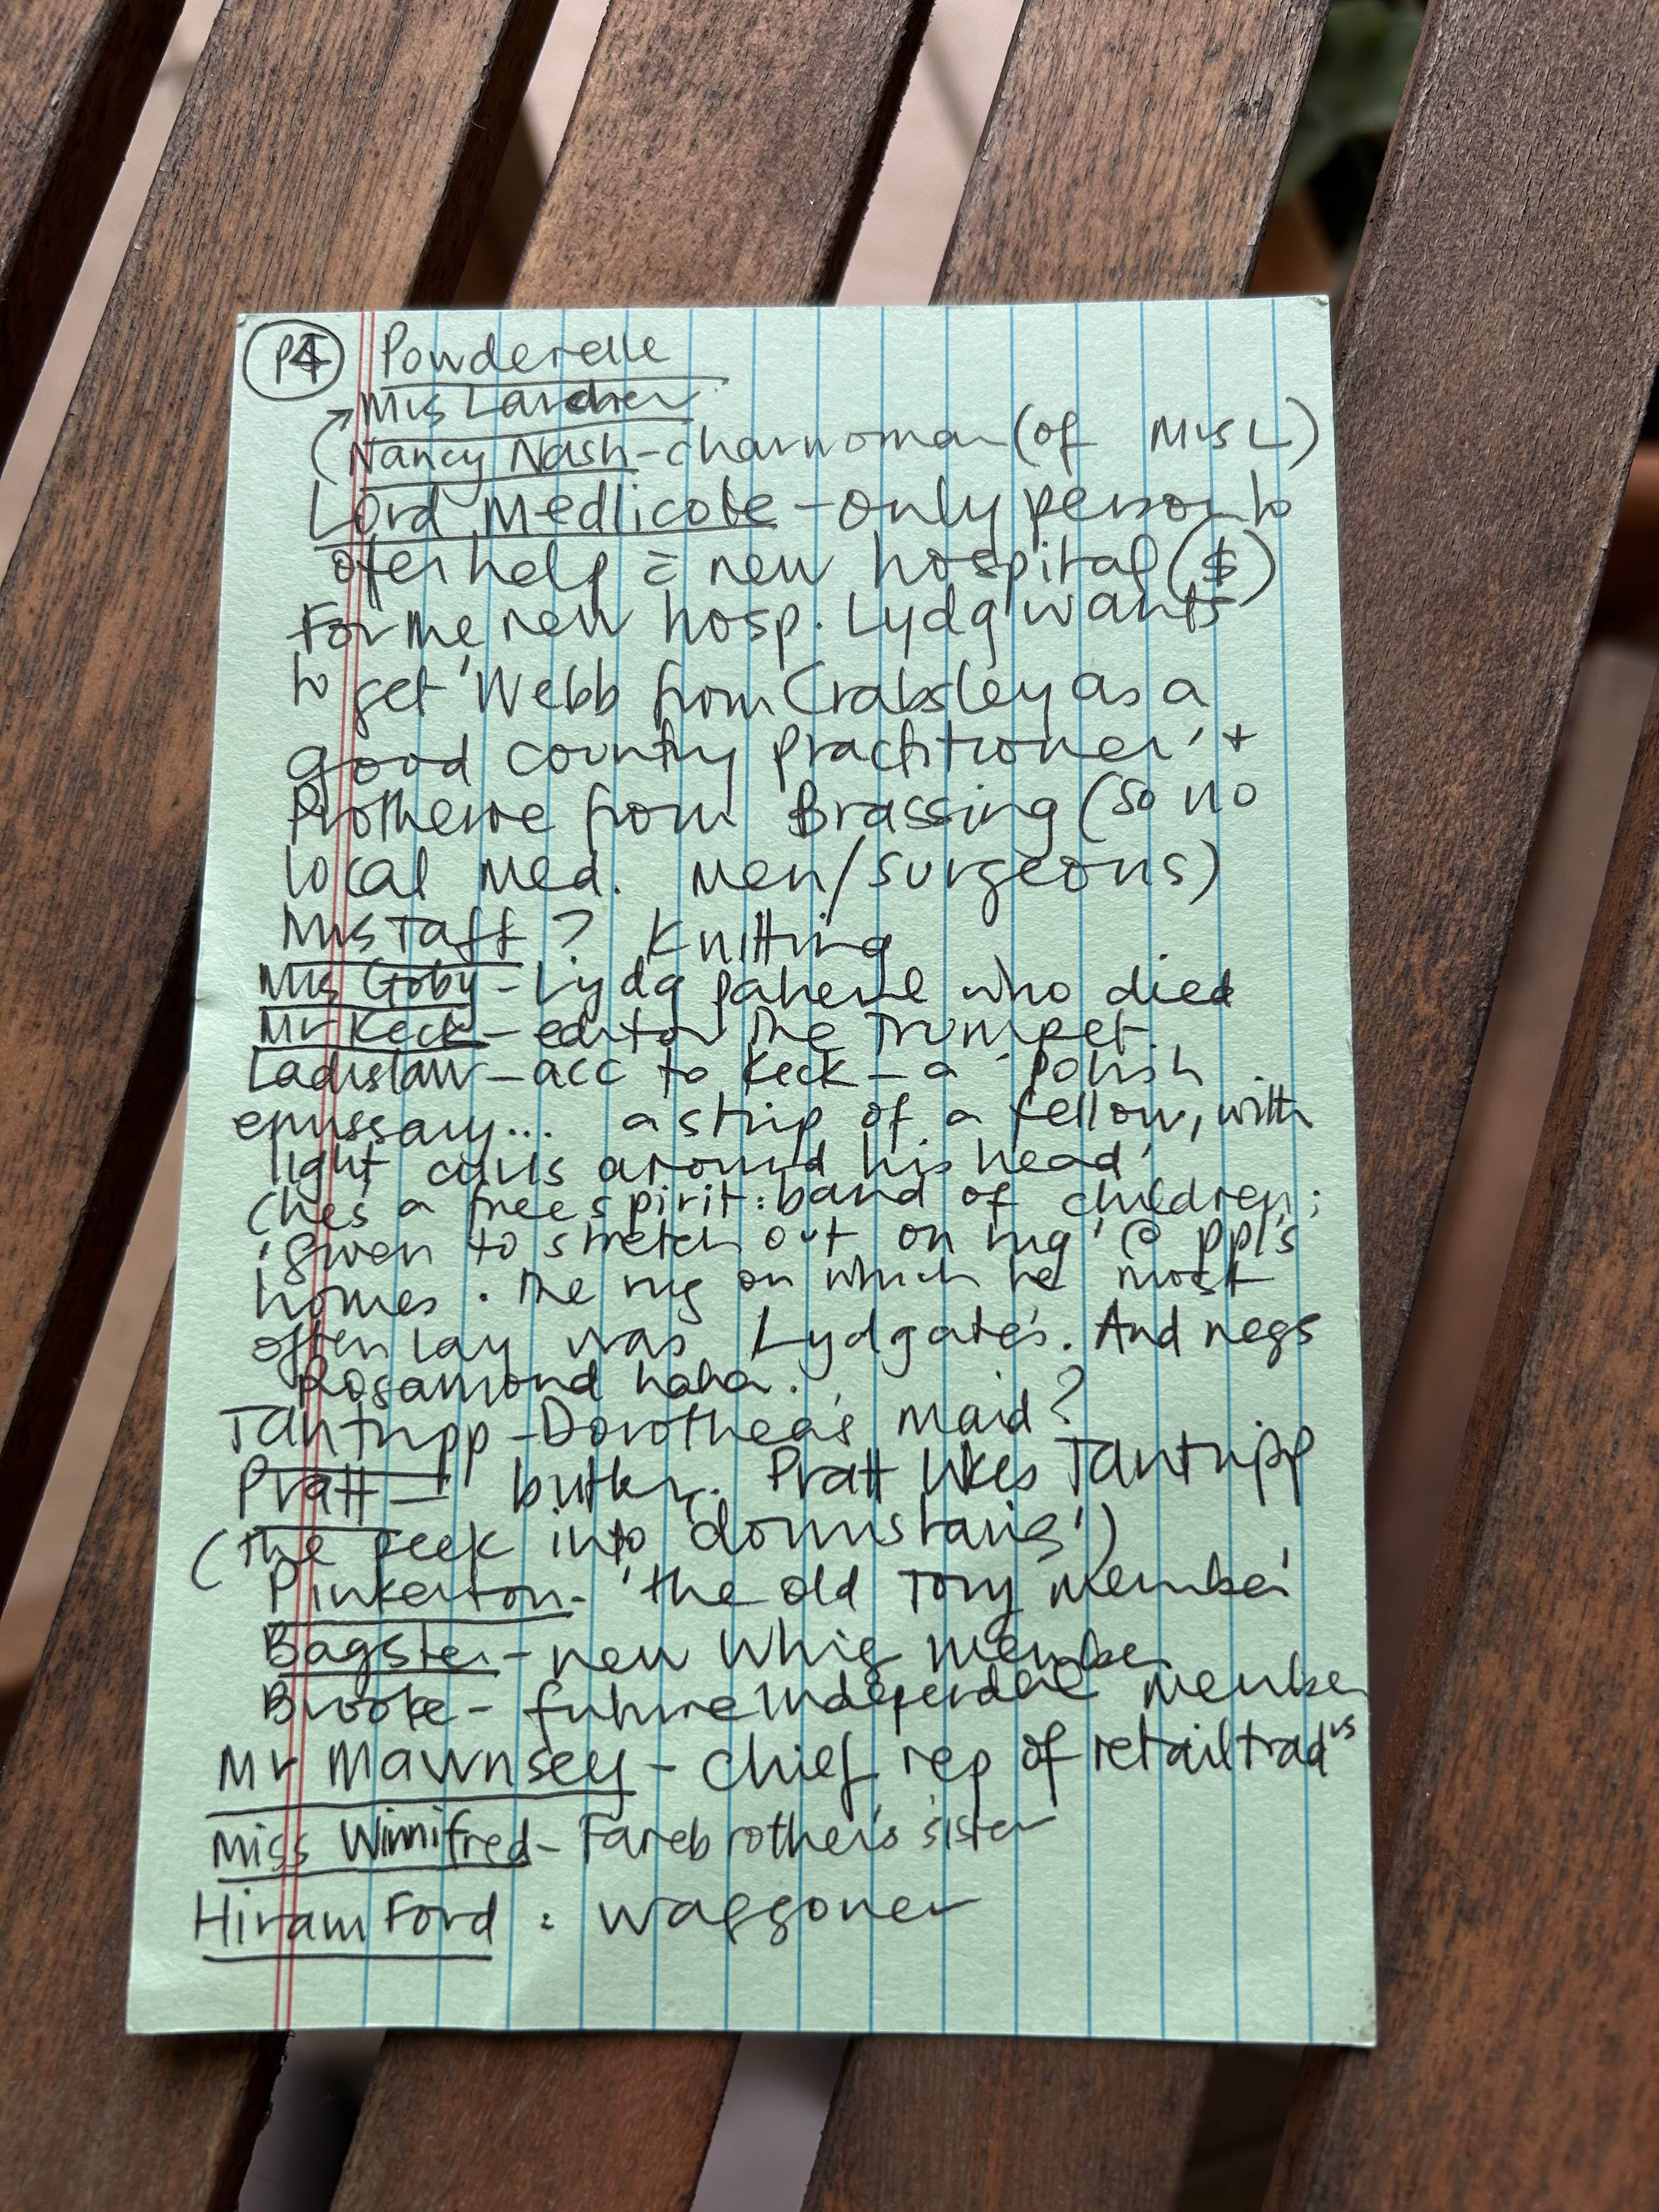 P4 Powderelle
→ Mrs Larcher
(Nancy Nash - charwoman (of Mrs L)
Lord Medlicote - only person to
offer help = new hospital ($)
For the new hosp. Lydg wants
to get 'Webb from Crabsley as a
good country practitioner' +
Protheroe from Brassing (so no
local med. men/surgeons)
Mrs Taft? Knitting
Mrs Goby - Lydg patient who died
Mr Keck - editor The Trumpet.
Ladislaw - acc to Keck - a 'Polish
emissary... a strip of a fellow, with
light curls around his head'
(he's a free spirit: band of children;
'given to stretch out on rug' @ ppl's
homes. The rug on which he most
often lay was Lydgate's. And negs
Rosamond haha.
Tantripp - Dorothea's maid?
Pratt - butler. Pratt likes Tantripp
(the peek into 'downstairs')
Pinkerton - 'the old Tory member'
Bagster - new Whig member
Brooke - future Independent member
Mr Mawmsey - chief rep of retail tradrs
Miss Winnifred - Farebrother's sister
Hiram Ford : waggoner